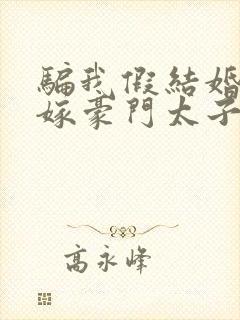 騙我假結婚
嫁豪門太子
高永峰